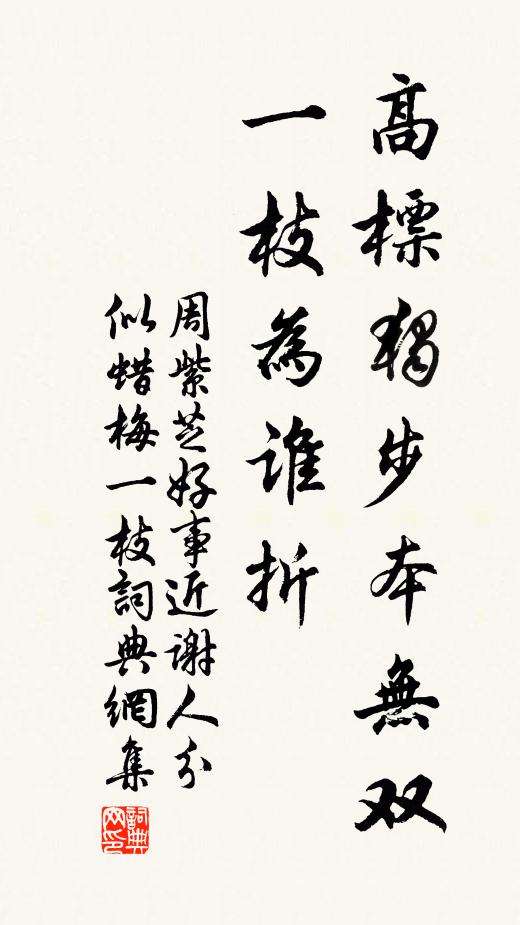 高標獨步本無双
一枝為誰折
周紫芝好事近謝人分
似蜡梅一枝詞典網集
詞典网印